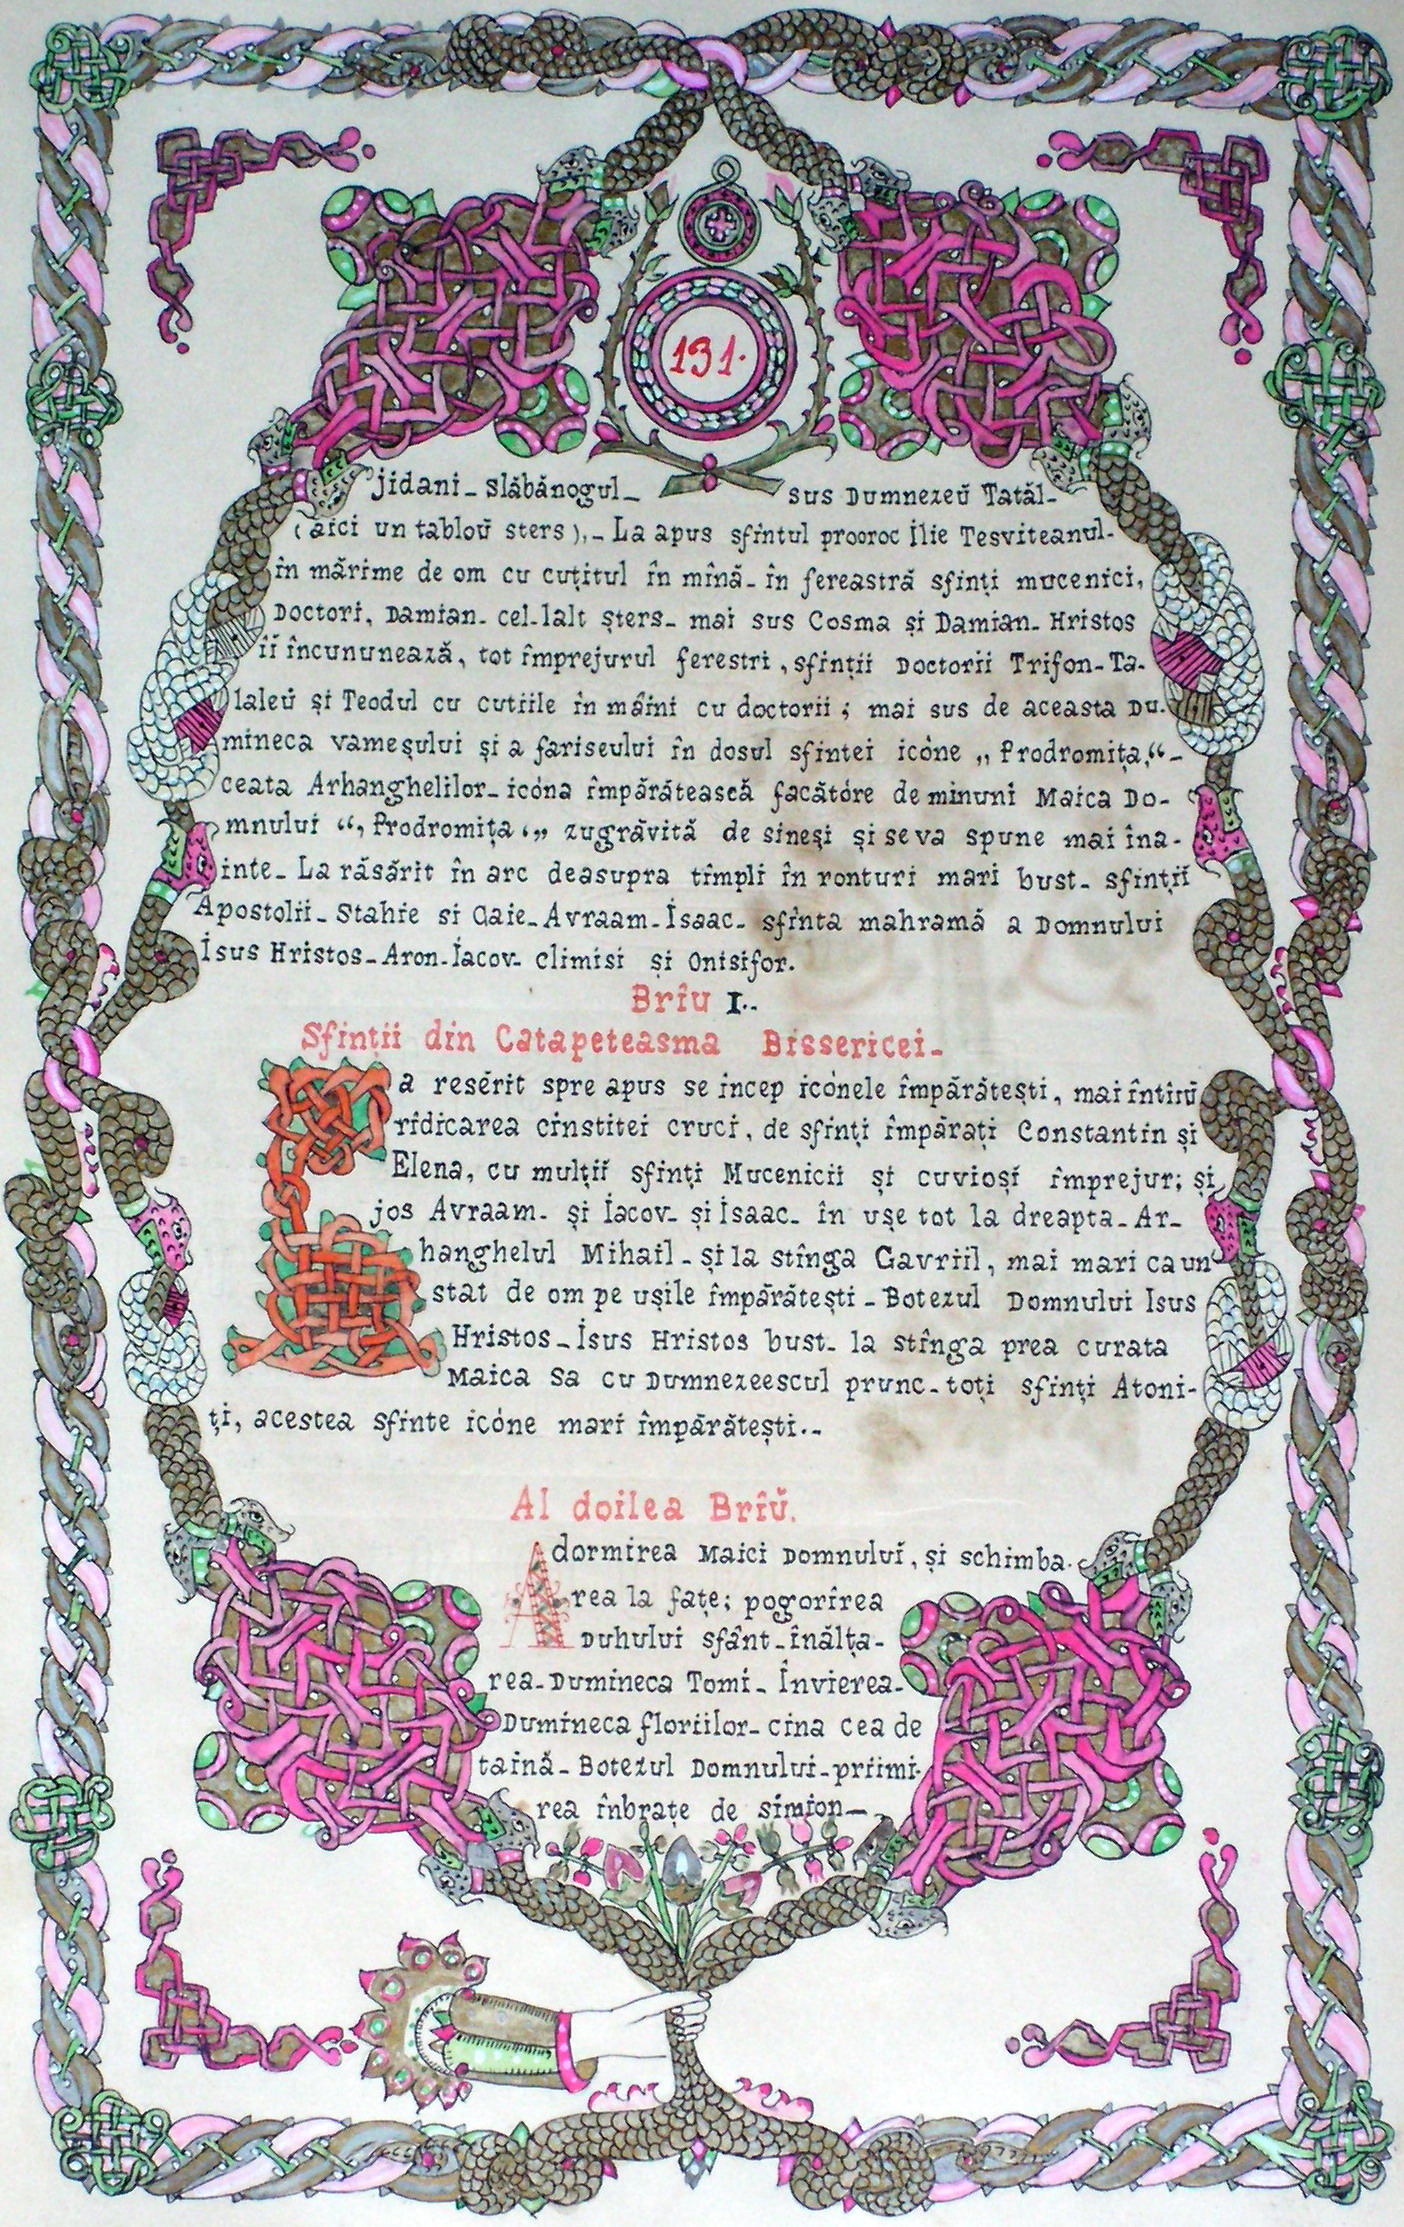 131.
jidani_ Slăbănogul_ sus Dumnezeŭ Tatăl-
(aici un tabloŭ sters)._ La apus sfîntul prooroc Ilie Tesviteanul-
în mărime de om cu cuțitul în mînă_ în fereastră sfinți mucenici,
Doctori, Damian_ cel-lalt șters_ mai sus Cosma și Damian_ Hristos
ĭĭ încununează, tot împrejurul ferestri, sfinții Doctorii Trifon-Ta-
laleŭ și Teodul cu cutiile în mâini cu doctorii; mai sus de aceasta Du-
mineca vameșului și a fariseului în dosul sfintei icóne „Prodromița,“_
ceata Arhanghelilor_ icóna împărătească facătóre de minuni Maica Do-
mnului “, Prodromița‘„ zugrăvită de sineși și se va spune mai îna-
inte_ La răsărit în arc deasupra tîmpli în ronturi mari bust_ sfinții
Apostolii_ Stahie si Gaie_ Avraam_ Isaac_ sfînta mahramă a Domnului
Isus Hristos_ Aron_ Iacov_ Climisi și Onisifor.
Brîu I..
Sfinții din Catapeteasma Bissericei_
La resĕrit spre apus se incep icónele împărătești, mai întîiŭ
rîdicarea cinstitei cruci, de sfinți împărați Constantin și
Elena, cu mulțiĭ sfinți Mucenicii și cuvioșĭ împrejur; și
jos Avraam_ și Iacov_ și Isaac_ în ușe tot la dreapta_ Ar-
hanghelul Mihail_ și la stînga Gavriil, mai mari ca un
stat de om pe ușile împărătești_ Botezul Domnului Isus
Hristos_ Isus Hristos bust_ la stînga prea curata
Maica Sa cu Dumnezeescul prunc_ toți sfinți Atoni-
ți, acestea sfinte icóne mari împărătești.._
Al doilea Brîŭ.
Adormirea Maici Domnuluĭ, și schimba-
rea la fațe; pogorîrea
Duhului sfânt_ înălța-
rea_ Dumineca Tomĭ_ Învierea_
Dumineca floriilor_ cina cea de
taină_ Botezul Domnului_ priimi-
rea înbrațe de simion_